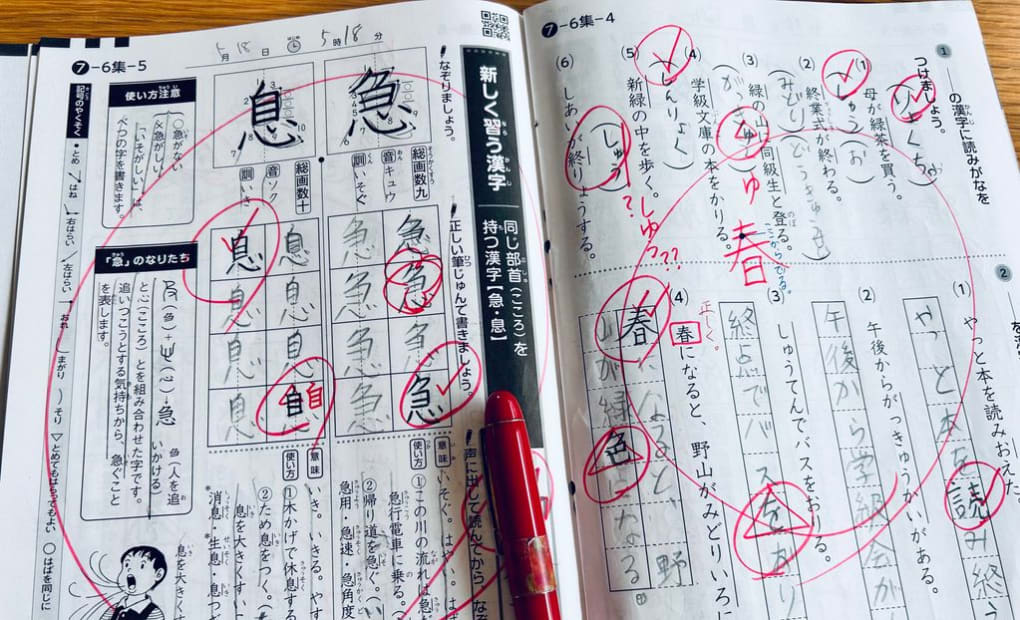 ❼-6集-4
1
の漢字に読みがなを
つけましょう。
(1) 母が緑茶を買う。
(りょくちゃ)
(2) 終業式が終わる。
(しゅう)(お)
(3) 緑の山に同級生と登る。
(みどり)(どうきゅうせい)
(4) 学級文庫の本をかりる。
(がっきゅう)
(5) 新緑の中を歩く。
(しんりょく)
(6) しあいが終りょうする。
(しゅう)
ゅ
春
しゅう??
?
ここからでる。
2
(1) やっと本を読みおえた。
やっと本を読み終
(2) 午後からがっきゅうかいがある。
午後から学級会が
(3) しゅうてんでバスをおりる。
終点でバスをおり
(4) 春になると、野山がみどりいろに
正しく。
春になると、野
山が緑色になる
❼-6集-5
5月18日
はじめ
5時18分
新しく習う漢字
同じ部首(こころ)を
持つ漢字【急・息】
なぞりましょう。
急
総画数九
音キュウ
訓いそぐ
息
総画数十
音ソク
訓いき
正しい筆じゅんで書きましょう。
急 急 急 急
急 急 急 急
息 息 息 息
息 息 息 息
自
声に出して読んでから
意味
いそぐ。はやい。
使い方
①この川の流れは急
急行電車に乗る。
②帰り道を急ぐ。
急用・急速・急角度
意味
いき。いきる。やす
使い方
①木かげで休息する
②ため息をつく。
息を大きくすい
消息・生息・息つ
使い方注意
○急がない
×急がしい
「いそがしい」は、
べつの字を書きます。
「急」のなりたち
(人を追いかける)
と(こころ)とを組み合わせた字です。
追いつこうとする気持ちから、急ぐこと
を表します。
息を大きくす
記号のやくそく
・とめ
はね
右はらい
左はらい
おれ
まがり
そり
▽とめてもはらってもよい
○はばを同じに